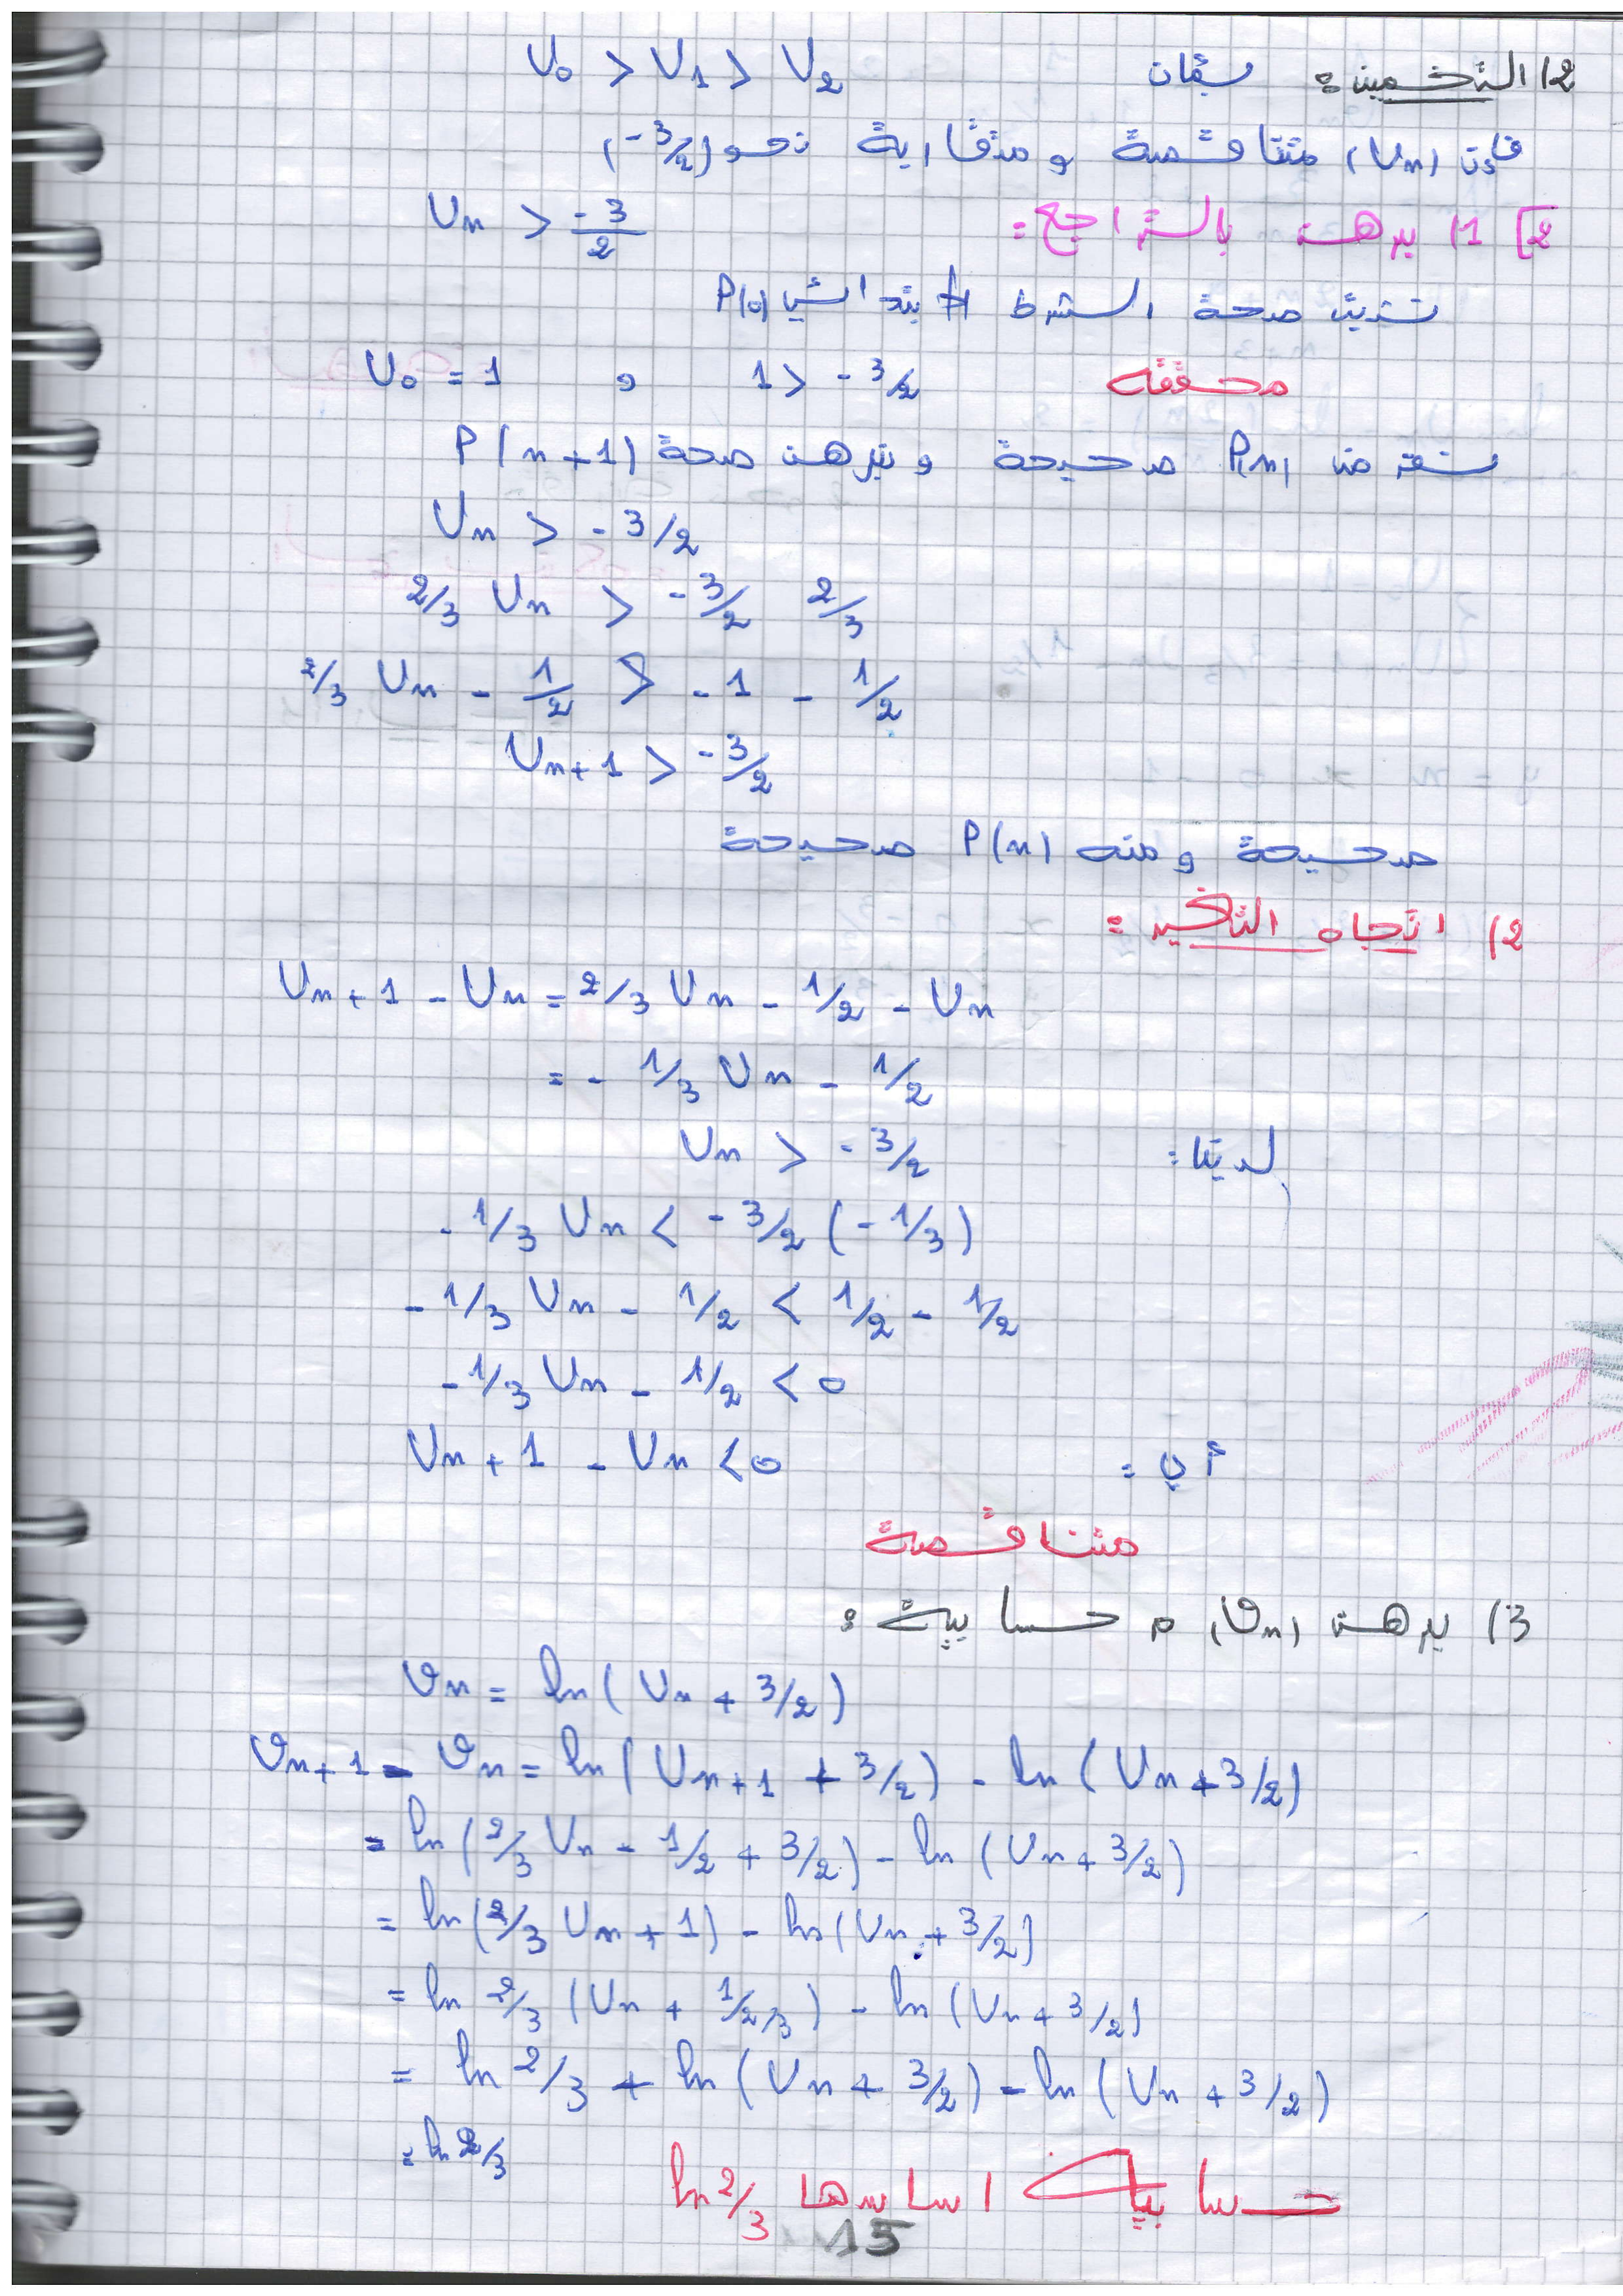 2) التخمين: بمان U₀ > U₁ > U₂
فإن (Un) متناقصة و متقاربة نحو (-3/2)
2] 1) برهن بالتراجع: Un > -3/2
نثبت صحة الشرط الابتدائي P(0)
U₀ = 1 و 1 > -3/2 محققة
نفرض P(n) صحيحة و نبرهن صحة P(n+1)
Un > -3/2
2/3 Un > -3/2 2/3
2/3 Un - 1/2 > -1 - 1/2
Un+1 > -3/2
صحيحة و منه P(n) صحيحة
2) اتجاه التغير:
Un+1 - Un = 2/3 Un - 1/2 - Un
= - 1/3 Un - 1/2
لدينا: Un > -3/2
-1/3 Un < -3/2 (-1/3)
-1/3 Un - 1/2 < 1/2 - 1/2
-1/3 Un - 1/2 < 0
أي: Un+1 - Un < 0
متناقصة
3) برهن (Vn) م حسابية:
Vn = ln(Un + 3/2)
Vn+1 - Vn = ln(Un+1 + 3/2) - ln(Un + 3/2)
= ln(2/3 Un - 1/2 + 3/2) - ln(Un + 3/2)
= ln(2/3 Un + 1) - ln(Un + 3/2)
= ln 2/3 (Un + 1/2/3) - ln(Un + 3/2)
= ln 2/3 + ln(Un + 3/2) - ln(Un + 3/2)
= ln 2/3
حسابية اساسها ln 2/3
15